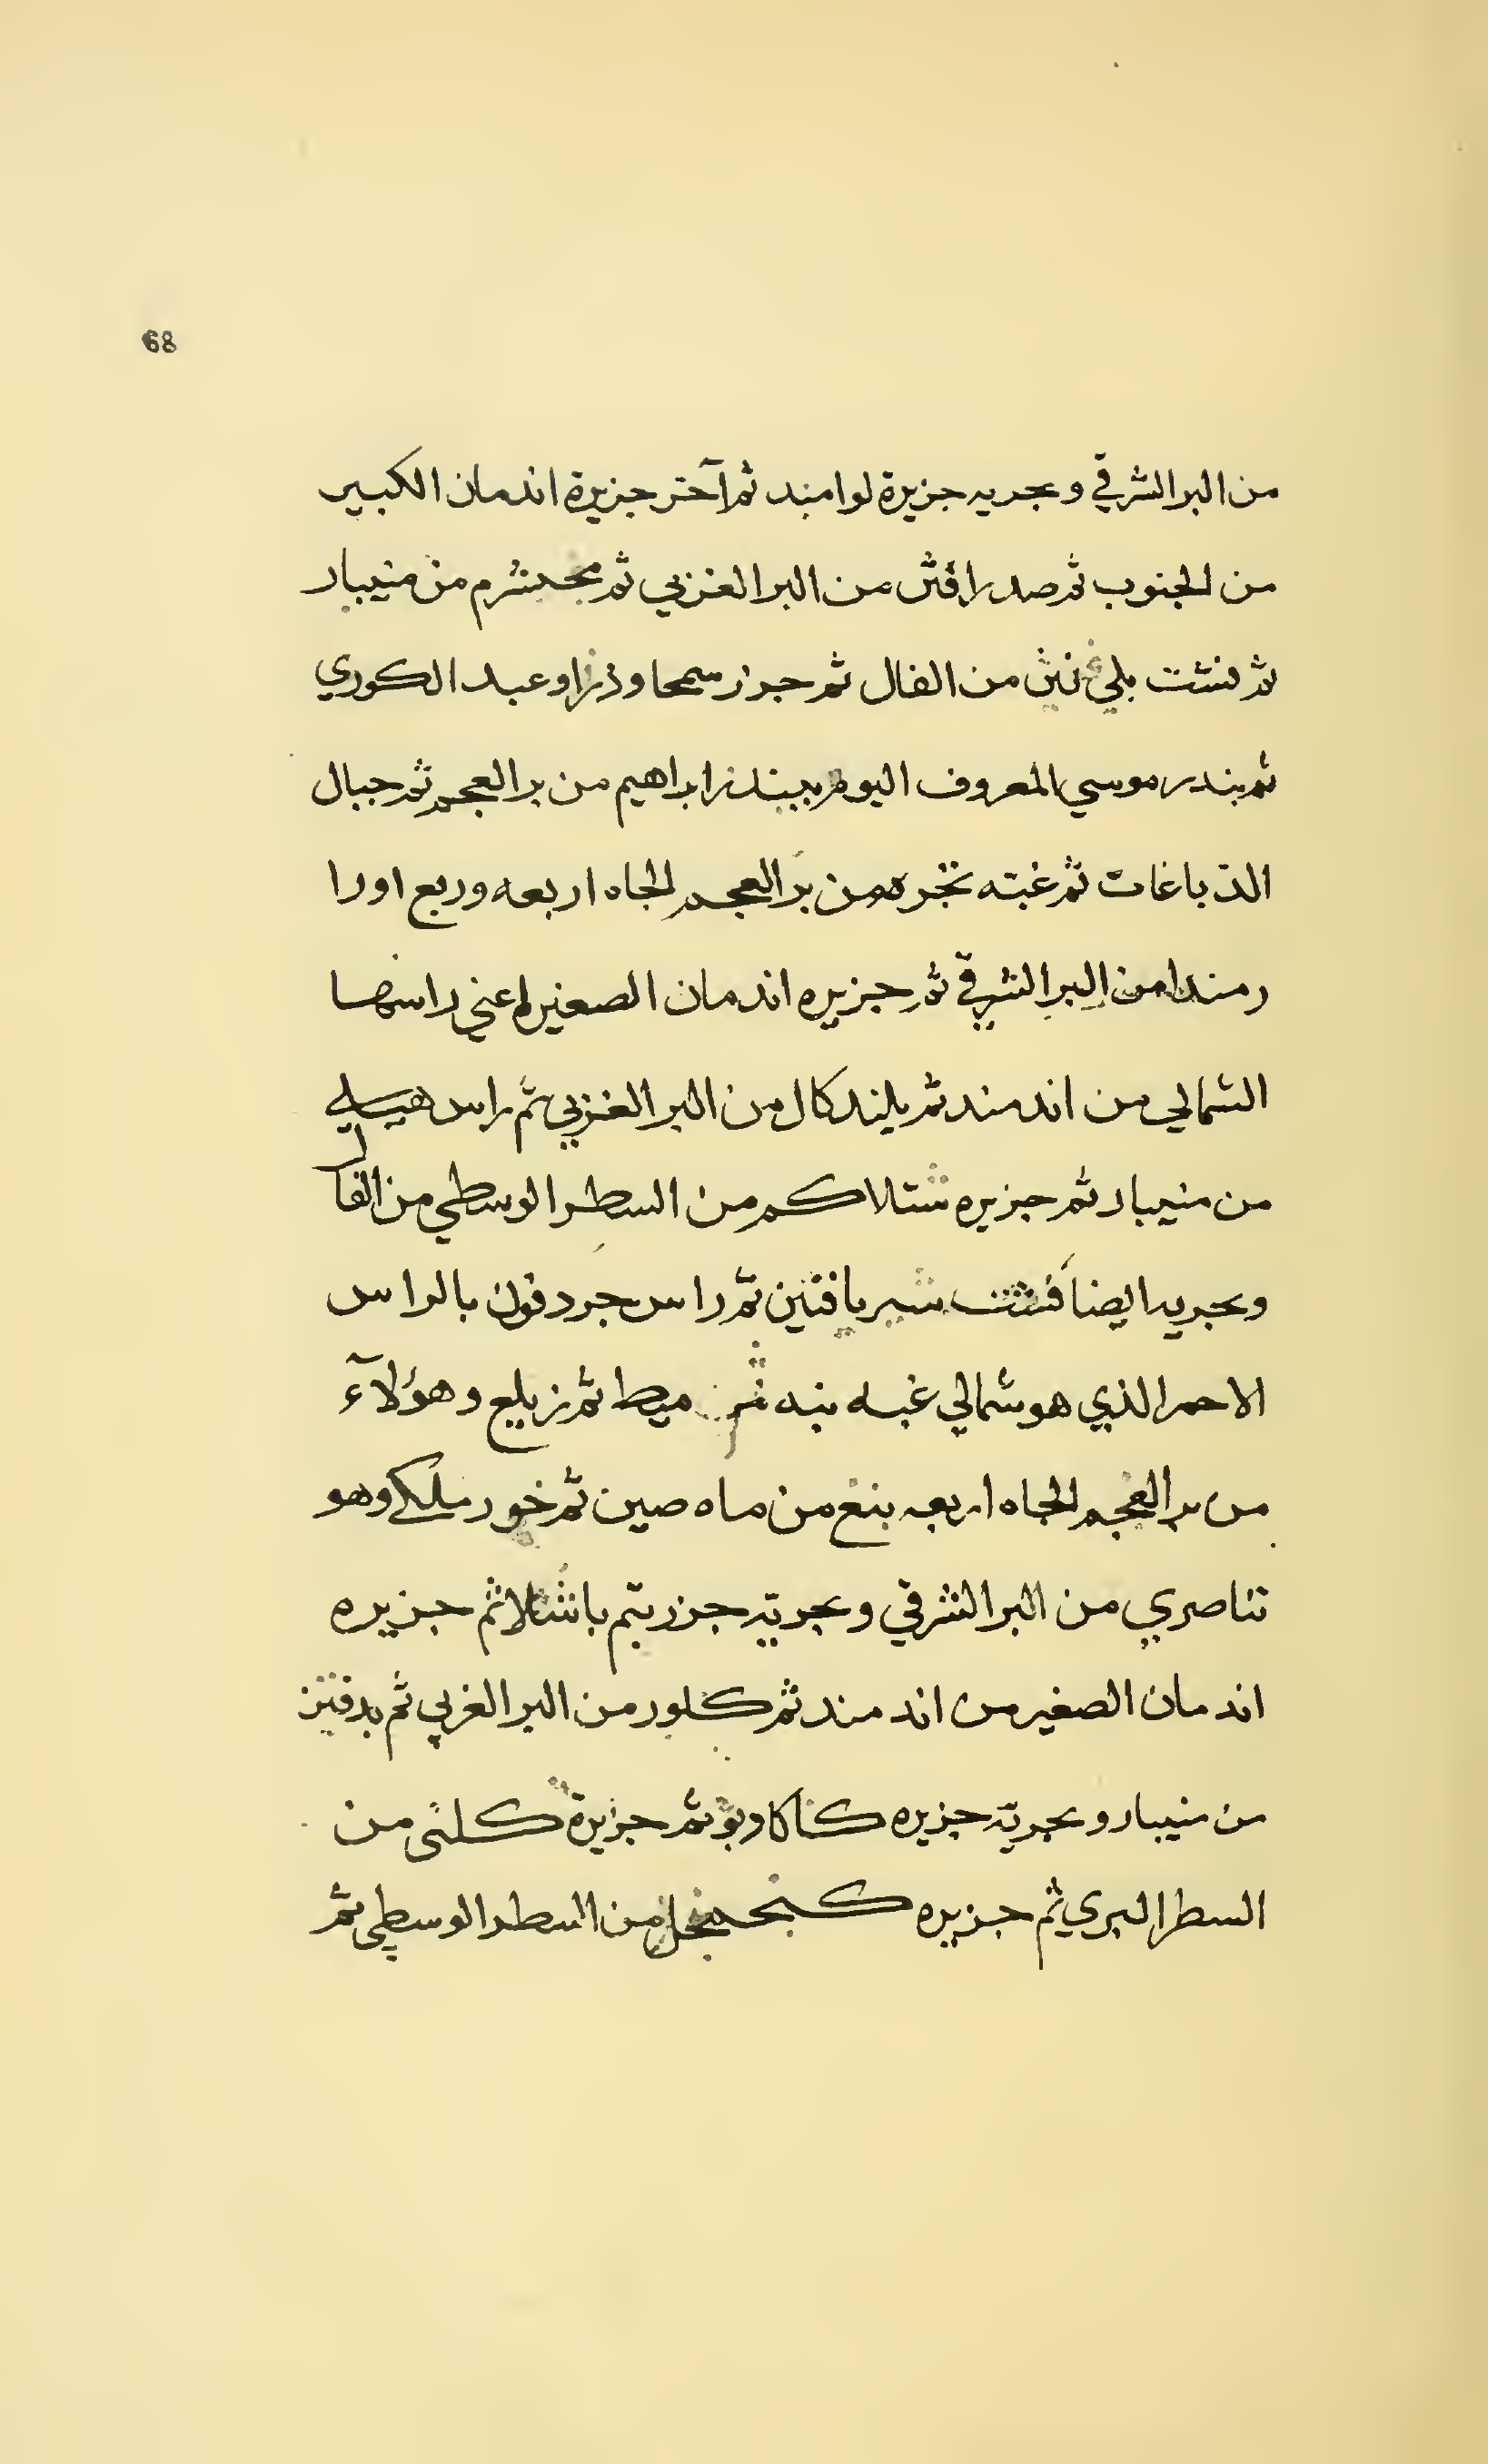 68
من البر الشرقي وبحريه جزيرة لوامند ثم آخر جزيرة اندمان الكبير
من الجنوب ثم صدرافتن من البر الغربي ثم من منيبار
ثم فشت من الفال ثم جزر سمحا ودرزا وعبد الكوري
ثم بندر موسي المعروف اليوم ببندر ابراهيم من بر العجم ثم جبال
الذباغات ثم غبته من بر العجم الجاه اربعه وربع اورا
رمندا من البر الشرقي ثم جزيره اندمان الصغير اعني راسها
الشمالي من اندمند ثم بلندكال من البر الغربي ثم راس هيلي
من منيبار ثم جزيره شتلاكم من السطر الوسطي من الفال
وبحريه ايضاً فشت ثم راس جردفون بالراس
الاحمر الذي هو شمالي غبه بنه ثم ميط ثم زيلع وهؤلآء
من بر العجم الجاه اربعه بنغ من ماه صين ثم خور ملكي وهو
تناصري من البر الشرقي وبحريّه جزر بتم باشلا ثم جزيره
اندمان الصغير من اندمند ثم كلور من البر الغربي ثم بدفتن
من منيبار وبحريّه جزيره ثم جزيرة كلتى من
السطر البري ثم جزيره من السطر الوسطي ثم